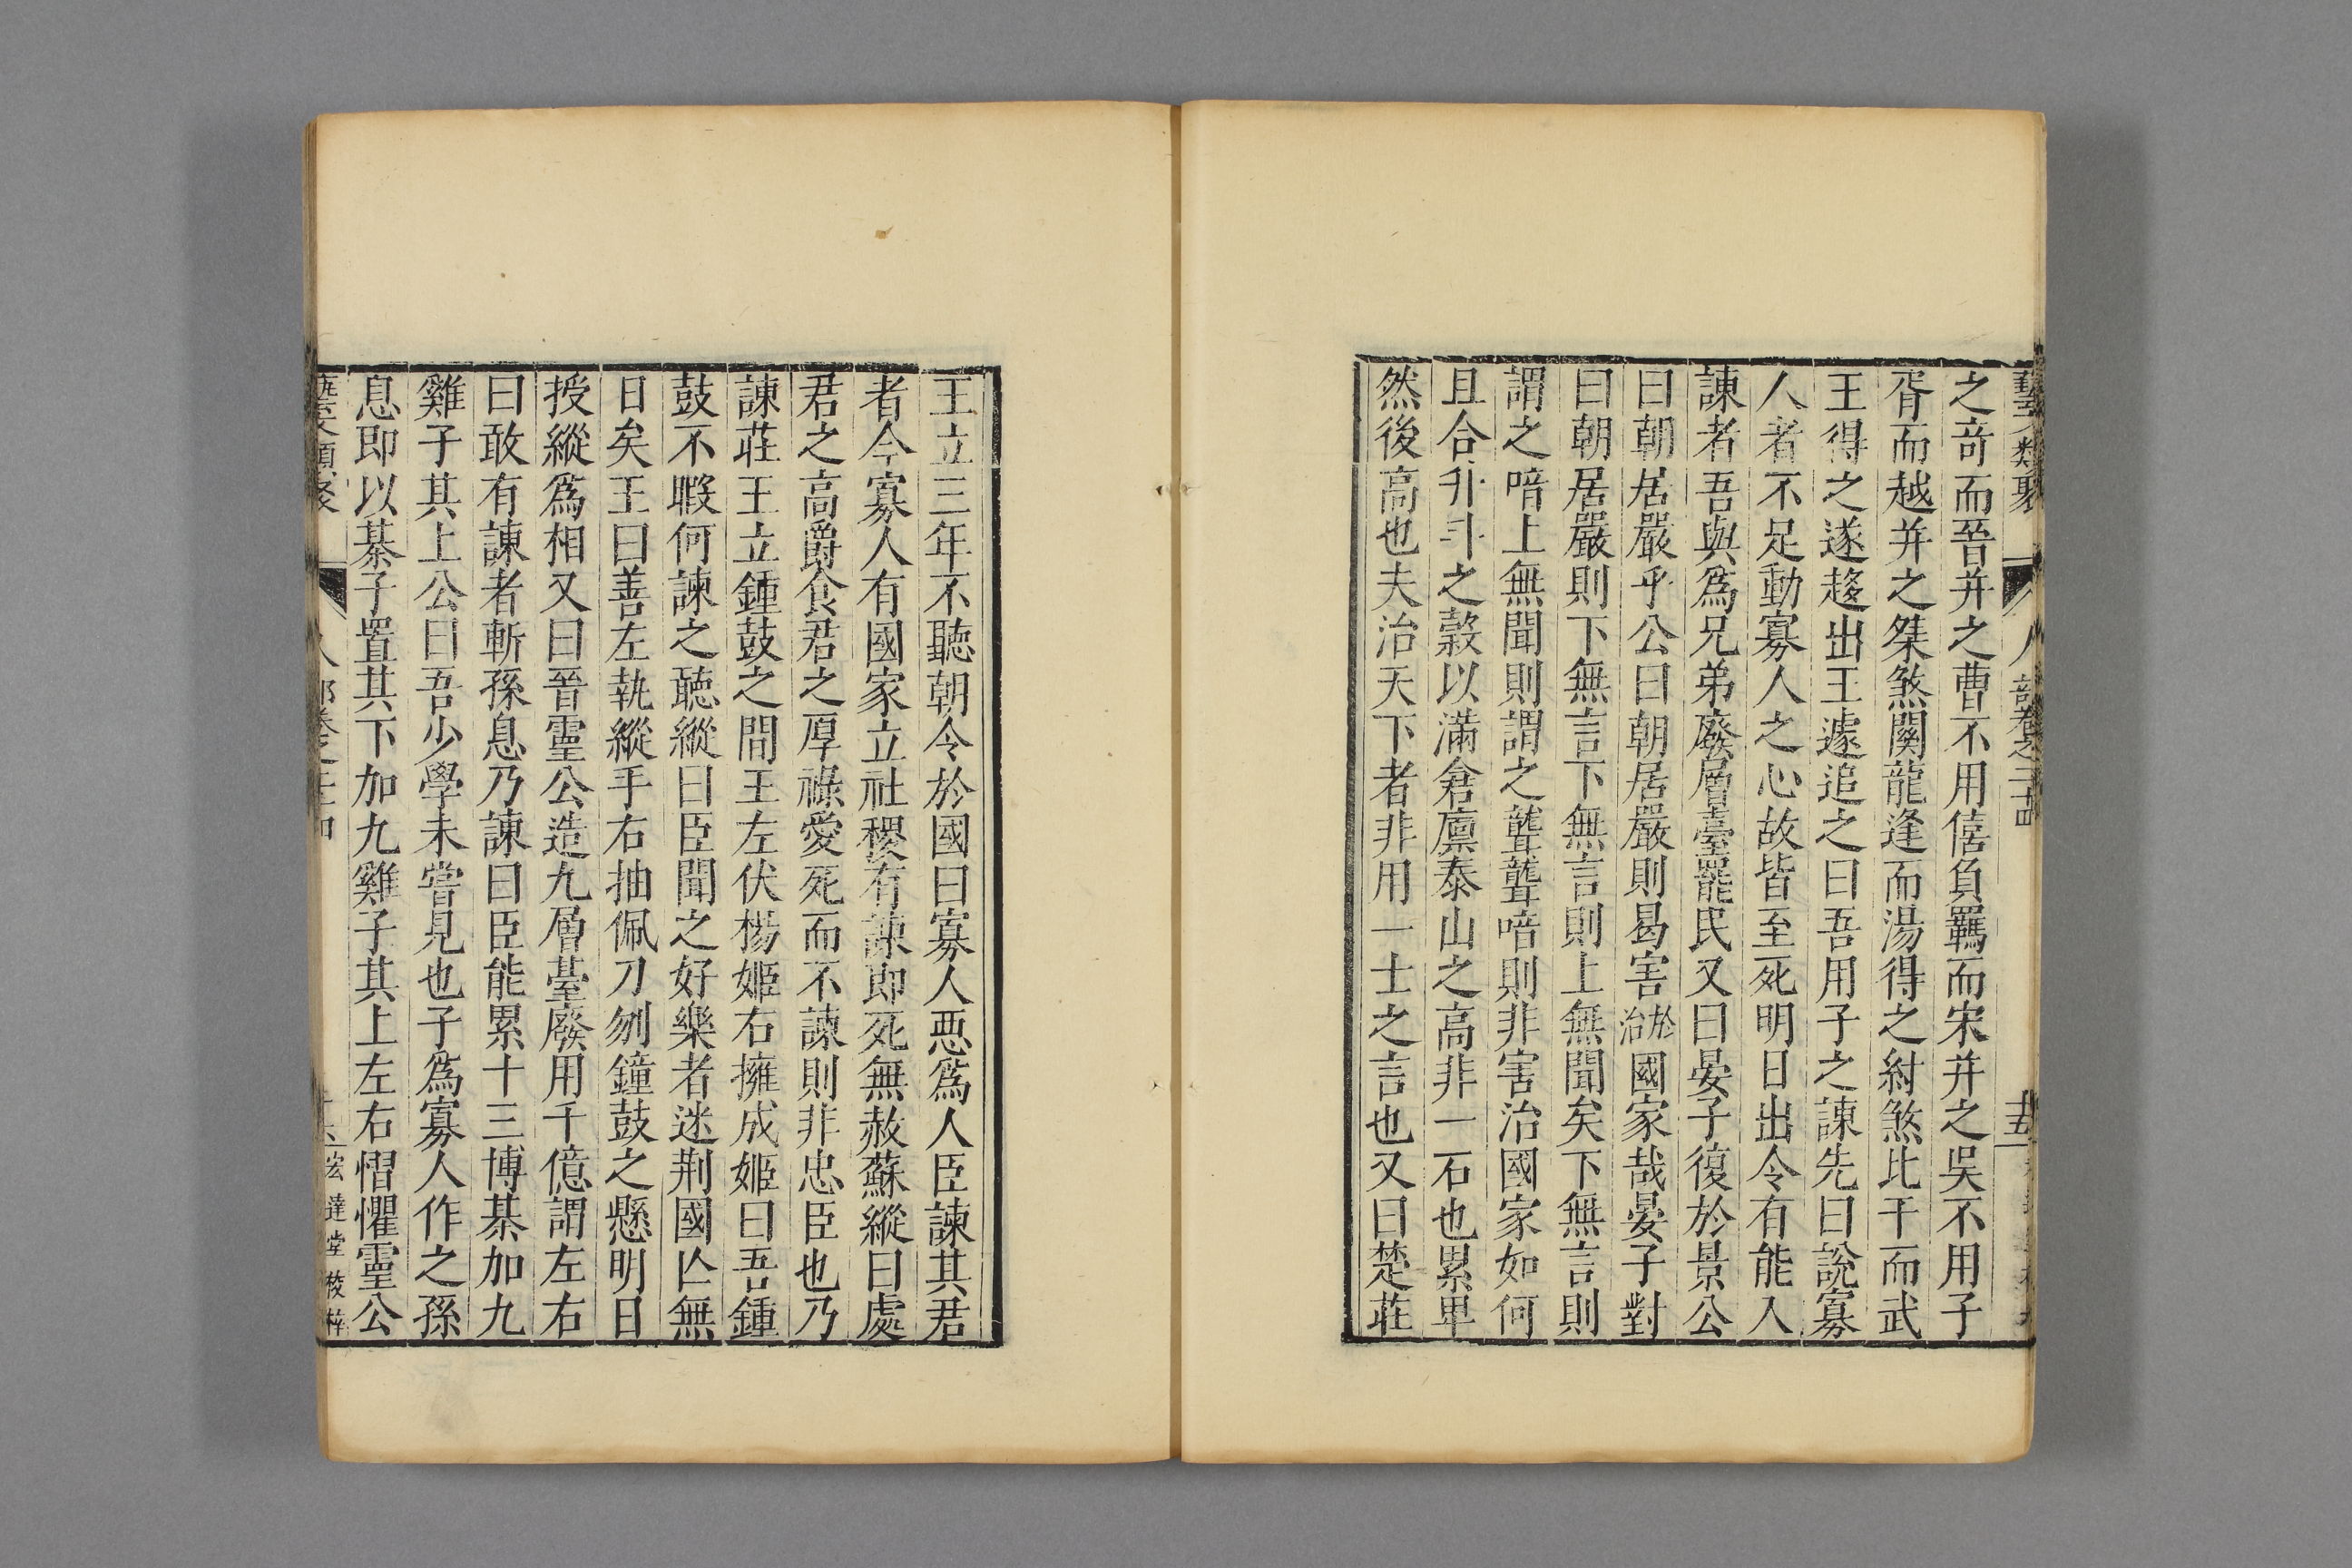 藝文類聚 人部卷之二十四 十五
之奇而晉并之曹不用僖負羈而宋并之吳不用子
胥而越并之桀煞關龍逢而湯得之紂煞比干而武
王得之遂趍出王遽追之曰吾用子之諫先曰說寡
人者不足動寡人之心故皆至死明日出令有能入
諫者吾與爲兄弟廢層臺罷民又曰晏子復於景公
曰朝居嚴乎公曰朝居嚴則曷害於治國家哉晏子對
曰朝居嚴則下無言下無言則上無聞矣下無言則
謂之喑上無聞則謂之聾聾喑則非害治國家如何
且合升㪷之糓以滿倉廩泰山之高非一石也累卑
然後高也夫治天下者非用一士之言也又曰楚莊
王立三年不聽朝令於國曰寡人惡爲人臣諫其君
者今寡人有國家立社稷有諫即死無赦蘇縱曰處
君之高爵食君之厚祿愛死而不諫則非忠臣也乃
諫莊王立鍾鼓之間王左伏楊姬右擁成姬曰吾鍾
鼓不暇何諫之聽縱曰臣聞之好樂者迷荆國亾無
日矣王曰善左執縱手右抽佩刀刎鐘鼓之懸明日
授縱爲相又曰晉靈公造九層臺廢用千億謂左右
曰敢有諫者斬孫息乃諫曰臣能累十三博棊加九
雞子其上公曰吾少學未嘗見也子爲寡人作之孫
息即以棊子置其下加九雞子其上左右慴懼靈公
藝文類聚 人部卷之二十四 十六 宏達堂校梓